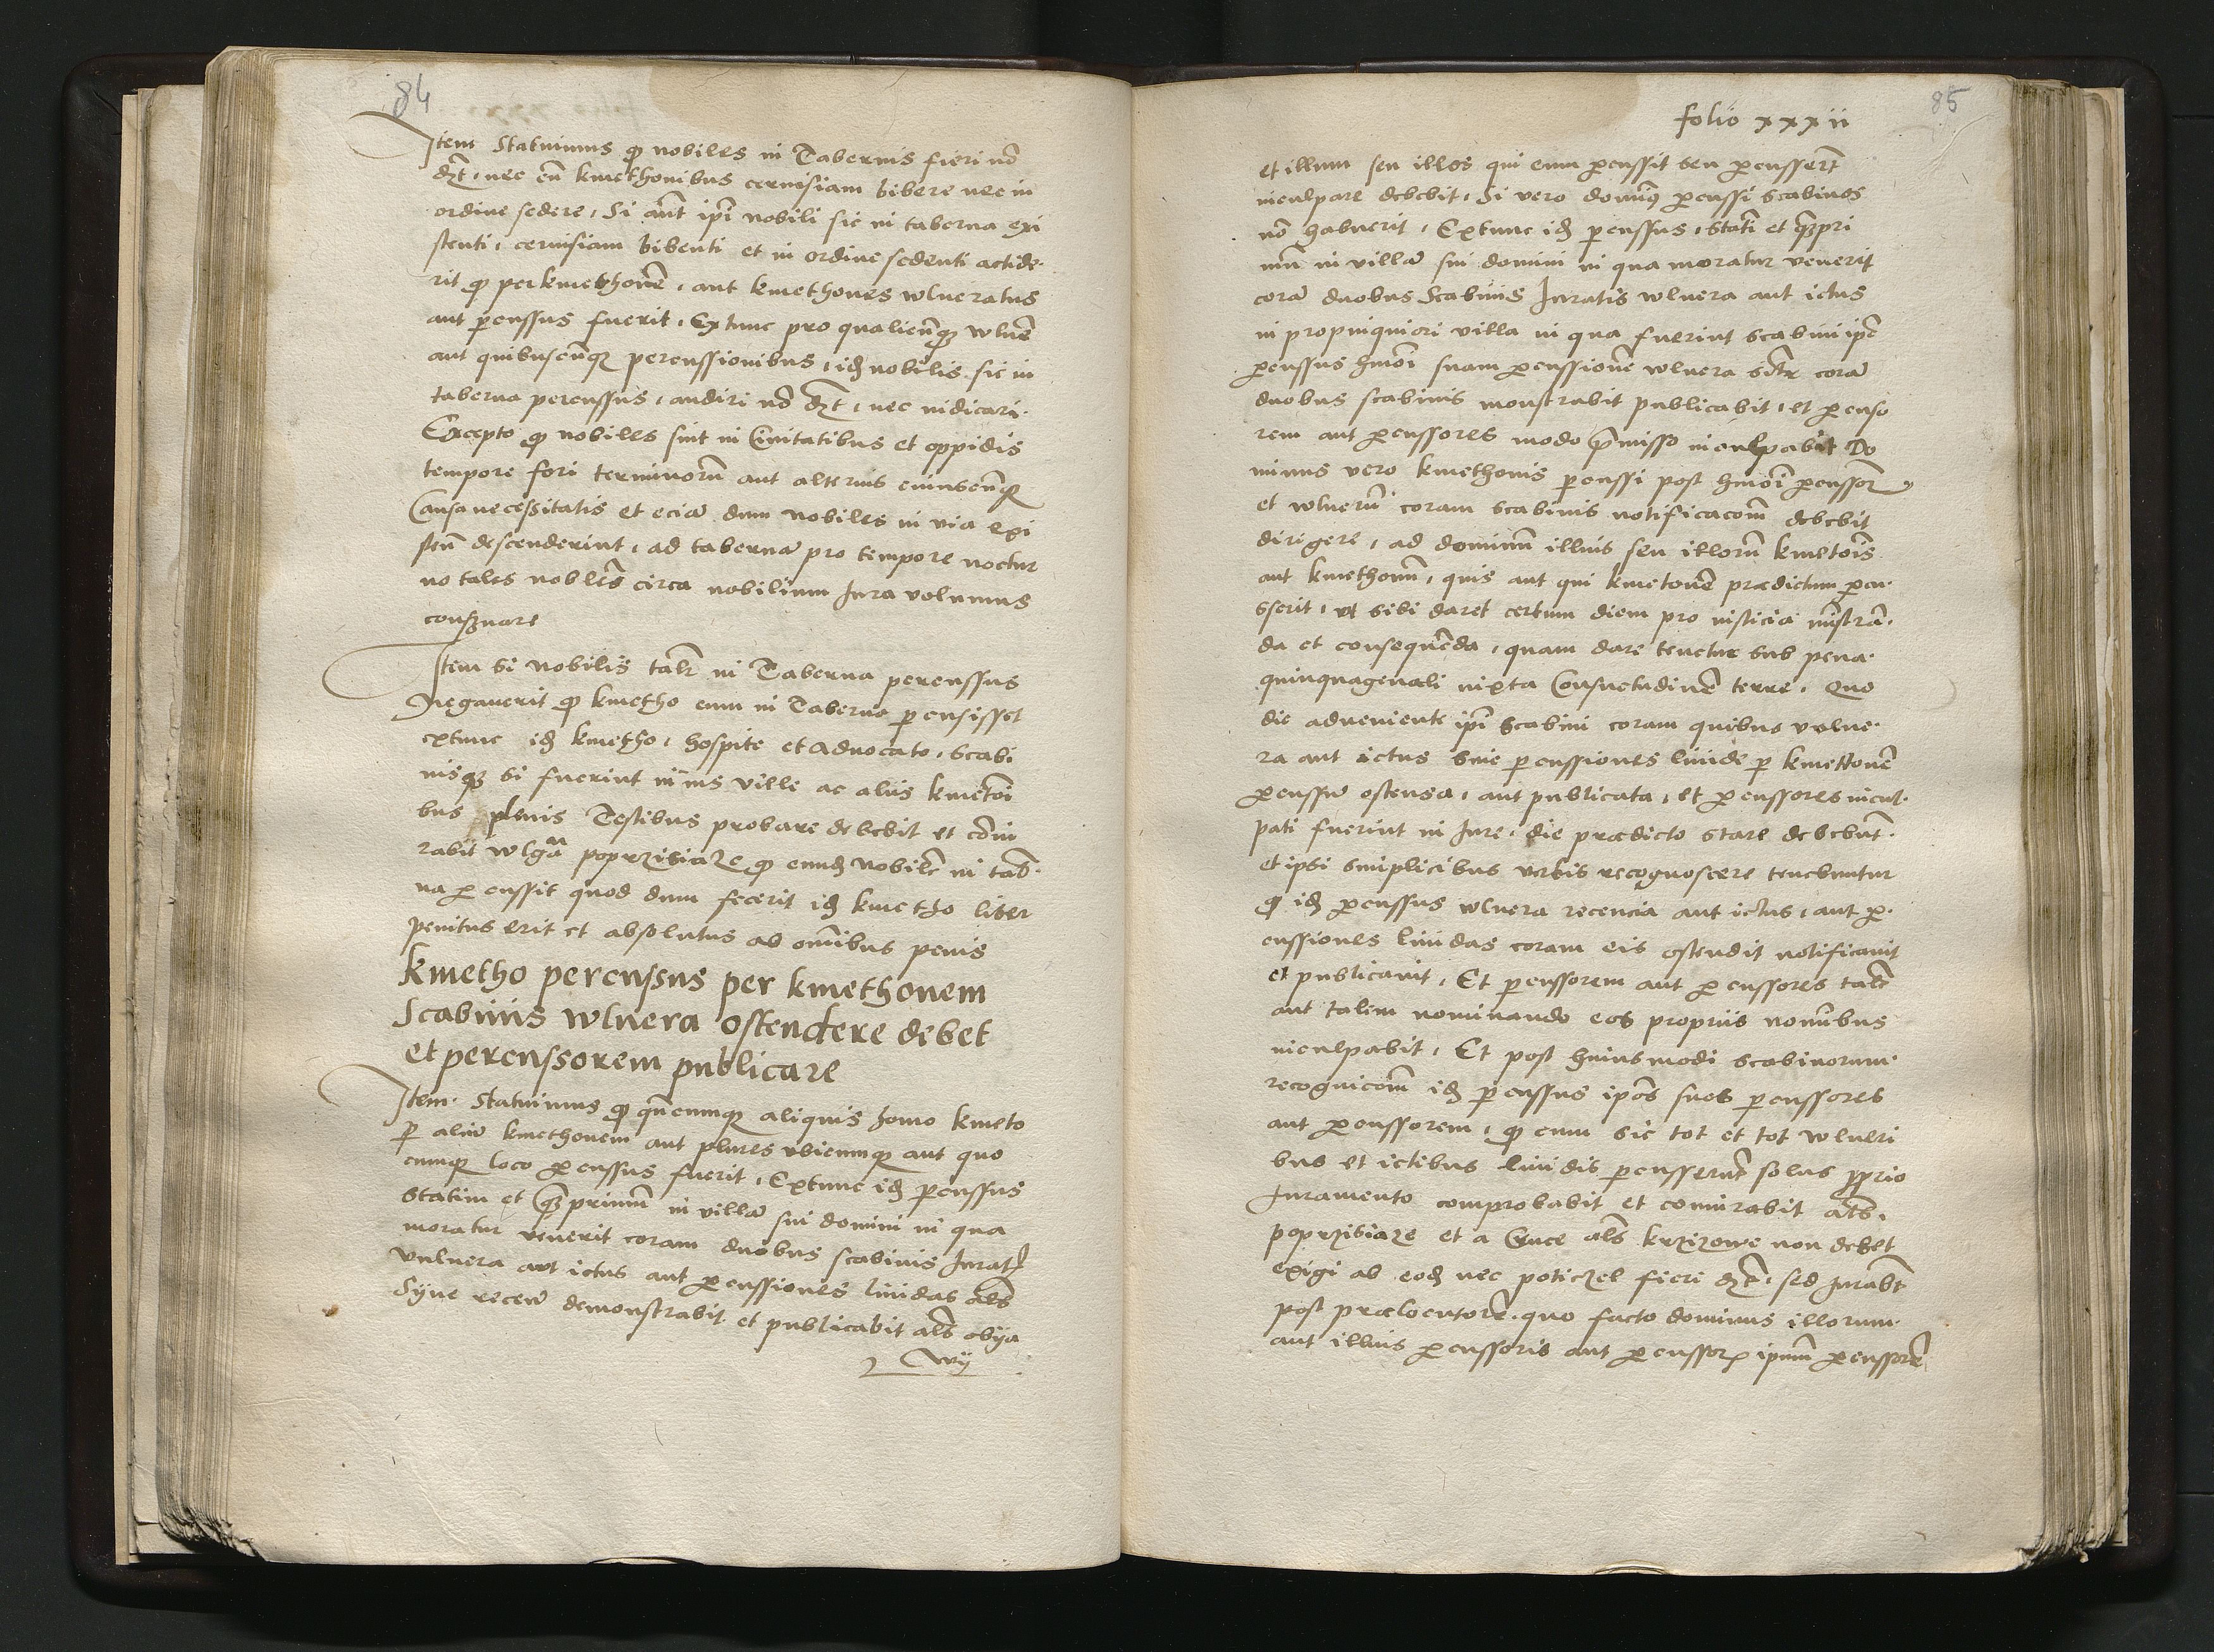 84
Item Statuimus ꝙ nobiles in Tabernis fieri nō
dʒt, nec cū kmethonibus ceruisiam bibere nec in
ordine sedere, Si aūt ipī nobili sic in taberna exi
stenti, ceruisiam bibenti et in ordine sedenti actide
rit ꝙ per kmethonē, aut kmethones wlneratus
aut ꝑcussus fuerit, Extunc pro qualicūqʒ wlnē
aut quibuscūqʒ percussionibus, idʒ nobilis sic in
taberna percussus, audiri nō dʒt, nec iudicari.
Excepto ꝙ nobiles sint in Ciuitatibus et oppidis
tempore fori terminorū aut alterius cuiuscūqʒ
Causa necessitatis et eciā dum nobiles in via exi
steñ descenderint, ad tabernā pro tempore noctur
no tales nobles̄ circa nobilium Jura volumus
conseruare
Item si nobilis talr̄ in Taberna percussus
Negauerit ꝙ kmetho eum in Taberna ꝑcusisset
extunc idʒ kmetho, hospite et aduocato, scabi
nisqʒ si fuerint in ius ville ac aliis kmetōi
bus plenis Testibus probare debebit et cōiu
rabit wlgaʳ poprzisiaze ꝙ eundʒ nobilē in tab̄
na ꝑcussit quod dum fecerit idʒ kmetho liber
penitus erit et absolutus ab omībus penis
kmetho percussus per kmethonem
Scabinis wlnera ostendere debet
et percussorem publicare
Item Statuimus ꝙ quēcumqʒ aliquis homo kmeto
ꝑ aliū kmethonem aut plures vbicumqʒ aut quo
cumqʒ loco ꝑcussus fuerit, Extunc idʒ ꝑcussus
statim et qʒprimū in villā sui domini in qua
moratur venerit coram duobus scabinis Jurat
vulnera aut ictus aut ꝑcussiones liuidas al̄s
Syne recen̄ demonstrabit et publicabit al̄s obya
wy
85
folio xxxii
et illum seu illos qui eum ꝑcussit seu ꝑcussert̄
inculpare debebit, Si vero domin9 ꝑcussi scabinos
nō habuerit, Extunc idʒ ꝑcussus, stati et qʒpri
mū in villā sui domini in qua moratur venerit
corā duobus Scabinis Juratis wlnera aut ictus
in propinquiori villa in qua fuerint scabini ipē
ꝑcussus hmōi suam ꝑcussionē wlnera sitr̄ corā
duobus scabinis monstrabit publicabit, et ꝑcuso
rem aut ꝑcussores modo p̄misso inculpabit Do
minus vero kmethonis ꝑcussi post hmōi ꝑcussor
et wlnerū coram scabinis notificacom̄ debebit
dirigere, ad dominū illius seu illorū kmetōis
aut kmethonū, quis aut qui kmetonē prædictum ꝑcu
sserit, vt sibi daret certum diem pro iusticia mīstrā
da et consequēda, quam dare tenetur sub pena
quinquagenali iuxta Consuetudinē terre, Quo
die adueniente ipī scabini coram quibus vulne
ra aut ictus siue ꝑcussiones liuide ꝑ kmettonē
ꝑcussū ostensa, aut publicata, et ꝑcussores incul
pati fuerint in Jure, die prædicto stare debebūt
et ipsi simplicibus verbis recognoscere tenebuntur
ꝙ idʒ ꝑcussus wlnera recencia aut ictus, aut ꝑ
cussiones liuidas coram eis ostendit notificauit
et publicauit, Et ꝑcussorem aut ꝑcussores talē
aut talem nominando eos propriis nomībus
inculpabit, Et post huiusmodi scabinorum
recognicom̄ idʒ ꝑcussus ipōs suos ꝑcussores
aut ꝑcussorem, ꝙ eum sic tot et tot wlneri
bus et ictibus liuidis ꝑcusserūt solus ꝓprio
Juramento comprobabit et coniurabit al̄s
poprzisiaze et a Cruce al̄s krzizowe non debet
exigi ab eodʒ nec poticzel fieri dʒt, sed Jurabt̄
post prælocutorē. quo facto dominus illorum
aut illius ꝑcussoris aut ꝑcussoꝝ ipmū ꝑcussorē